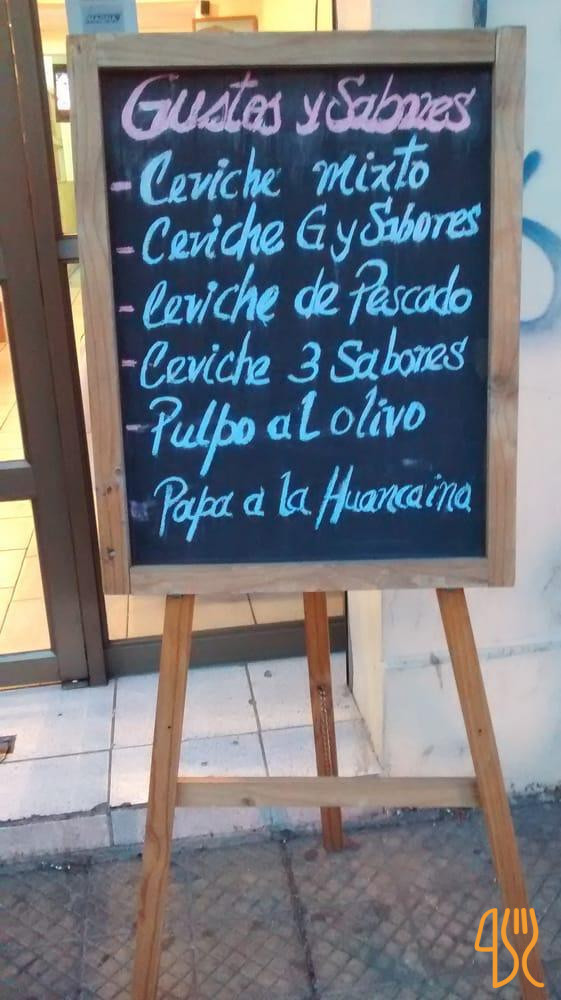 Gustos y Sabores
- Ceviche mixto
- Ceviche G y Sabores
- Ceviche de Pescado
- Ceviche 3 Sabores
- Pulpo al olivo
- Papa a la Huancaina